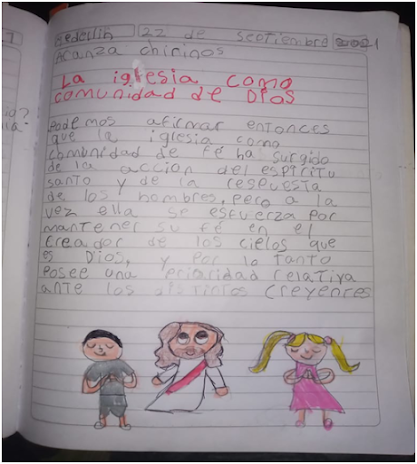 Medellín 22 de Septiembre 2021
Aranza chirinos
La iglesia como
comunidad de Dios
Podemos afirmar entonces
que la iglesia como
comunidad de fe ha surgido
de la accion del espiritu
santo y de la respuesta
de los hombres, pero a la
vez ella se esfuerza por
mantener su fe en el
creador de los cielos que
es Dios, y por lo tanto
posee una priaridad relativa
ante los distintos creyentes